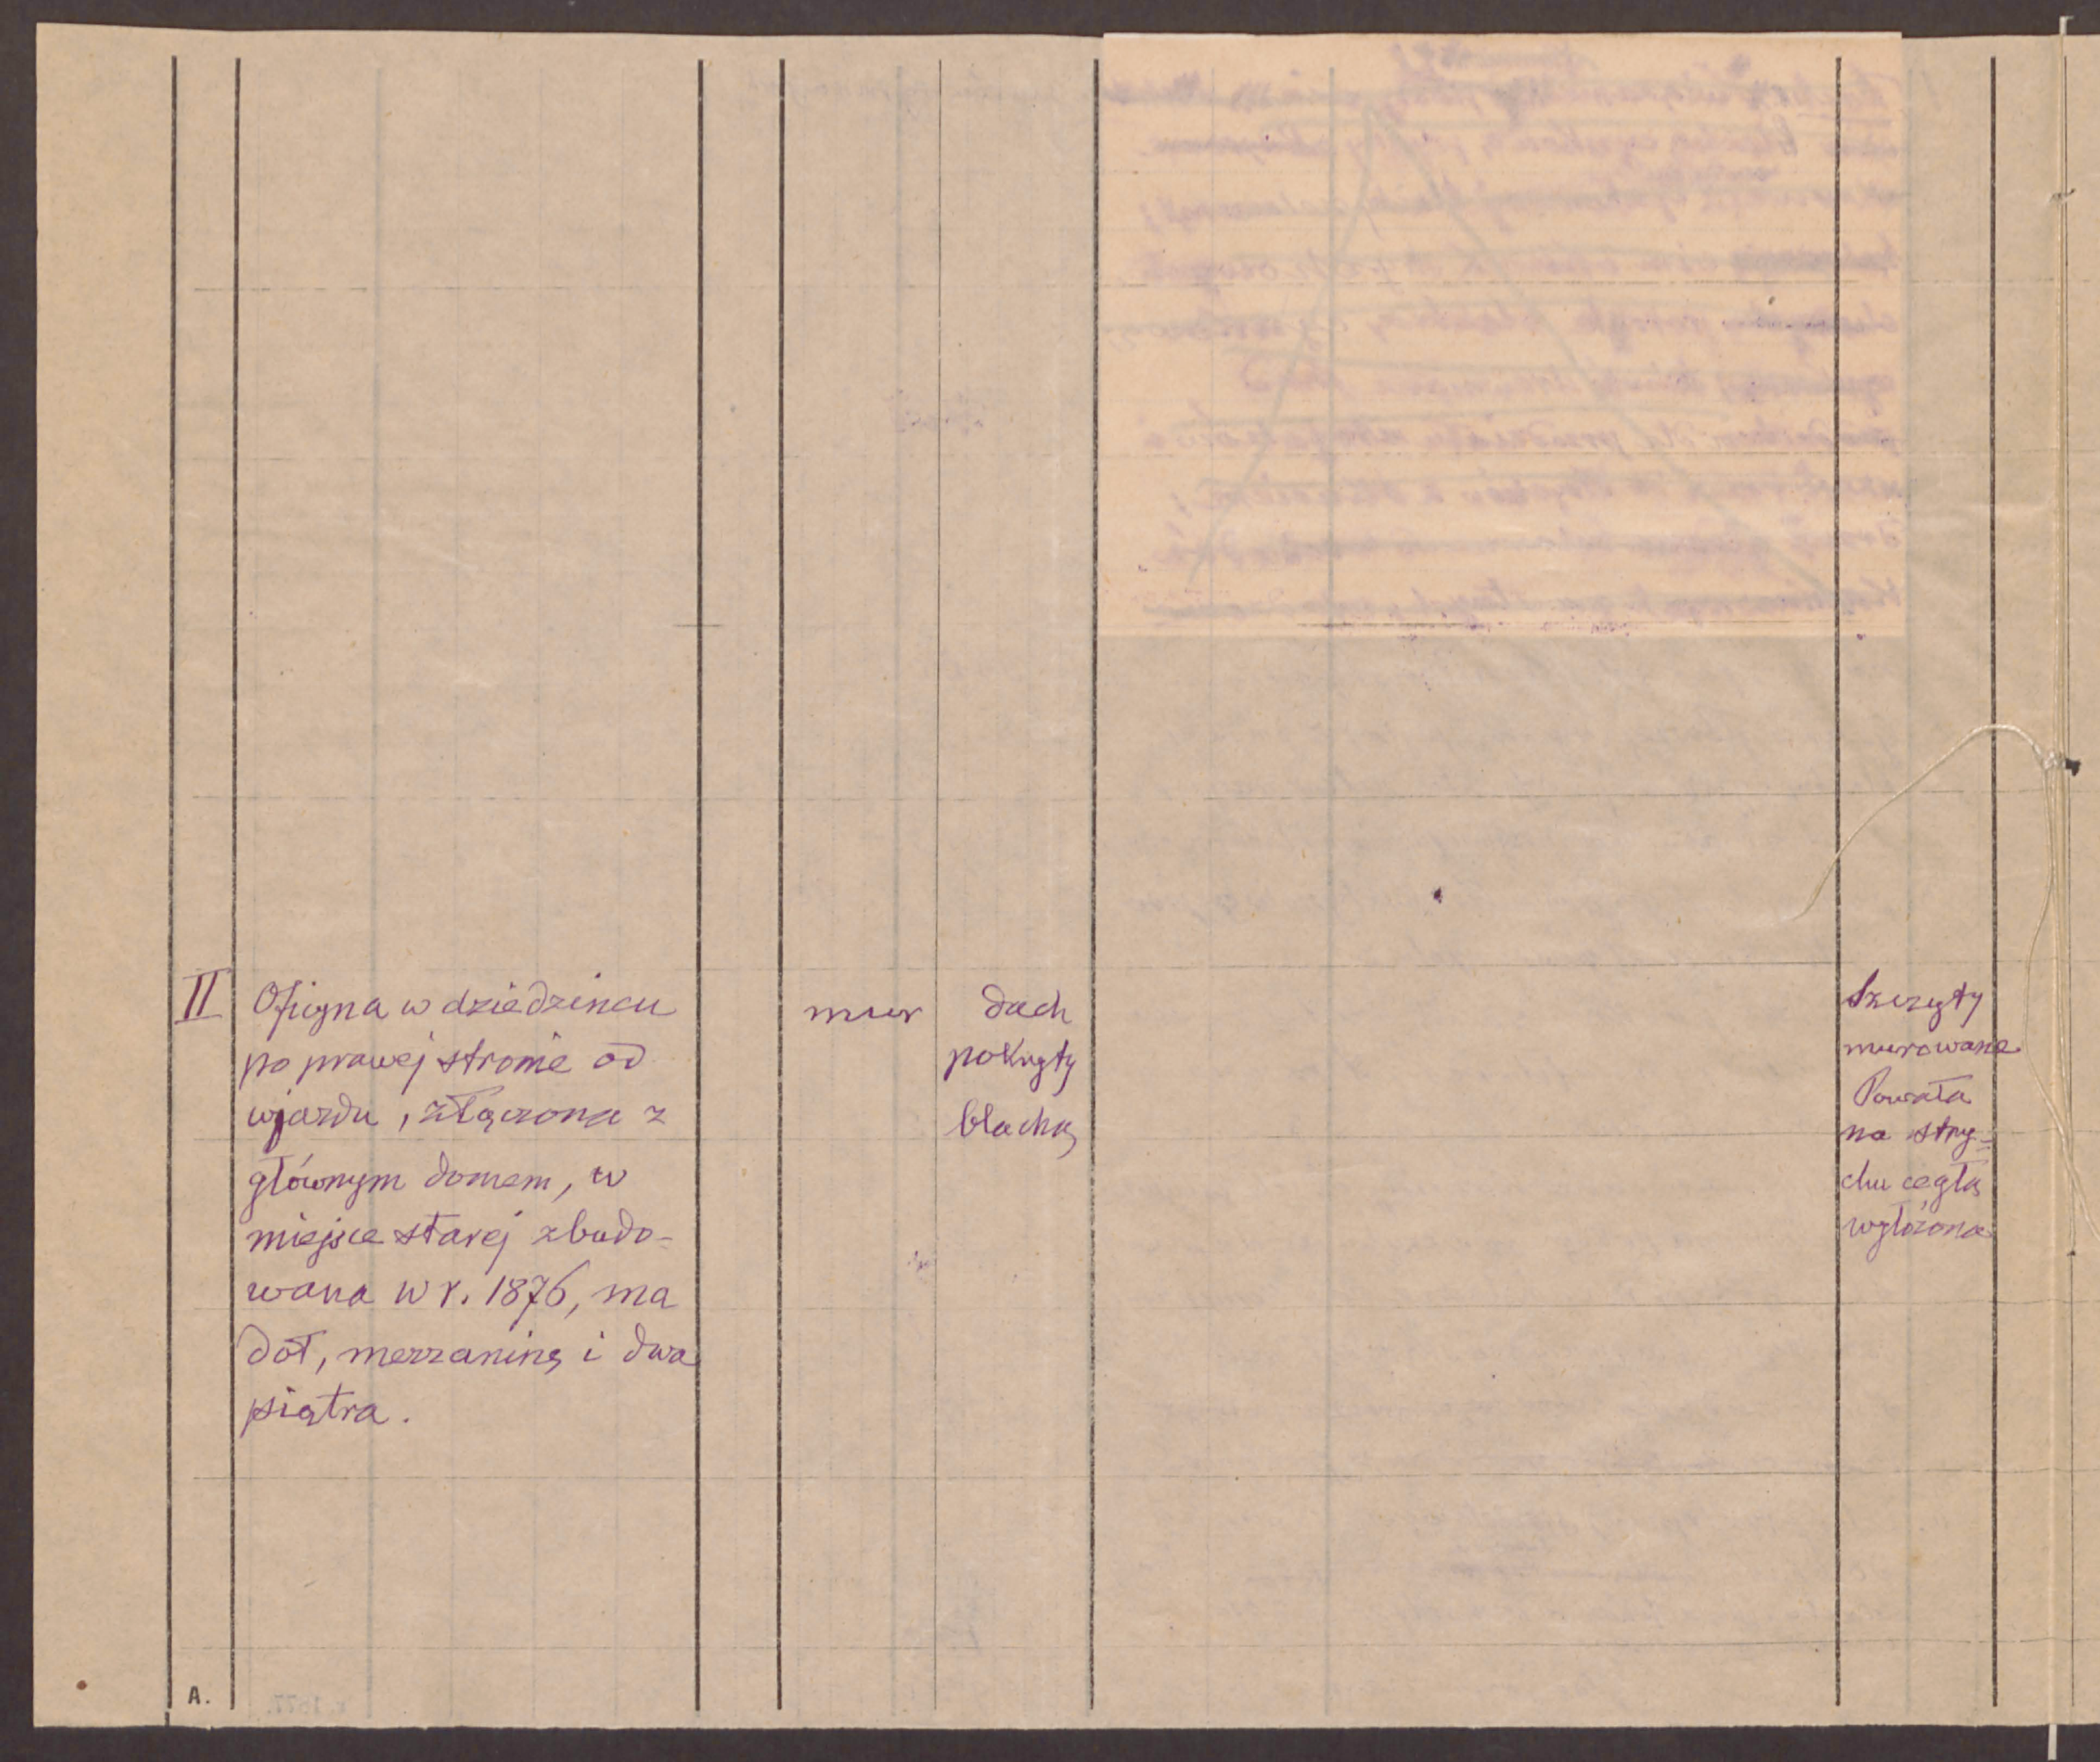 II
Oficyna w dziedzińcu
po prawej stronie od
wjazdu, złączona z
głównym domem, w
miejsce starej zbudo-
wana w r. 1876, ma
dół, mezzaninę i dwa
piątra.
mur
dach
pokryty
blachą
Szczyty
murowane
Powała
na stry-
chu cegłą
wyłożona
A.